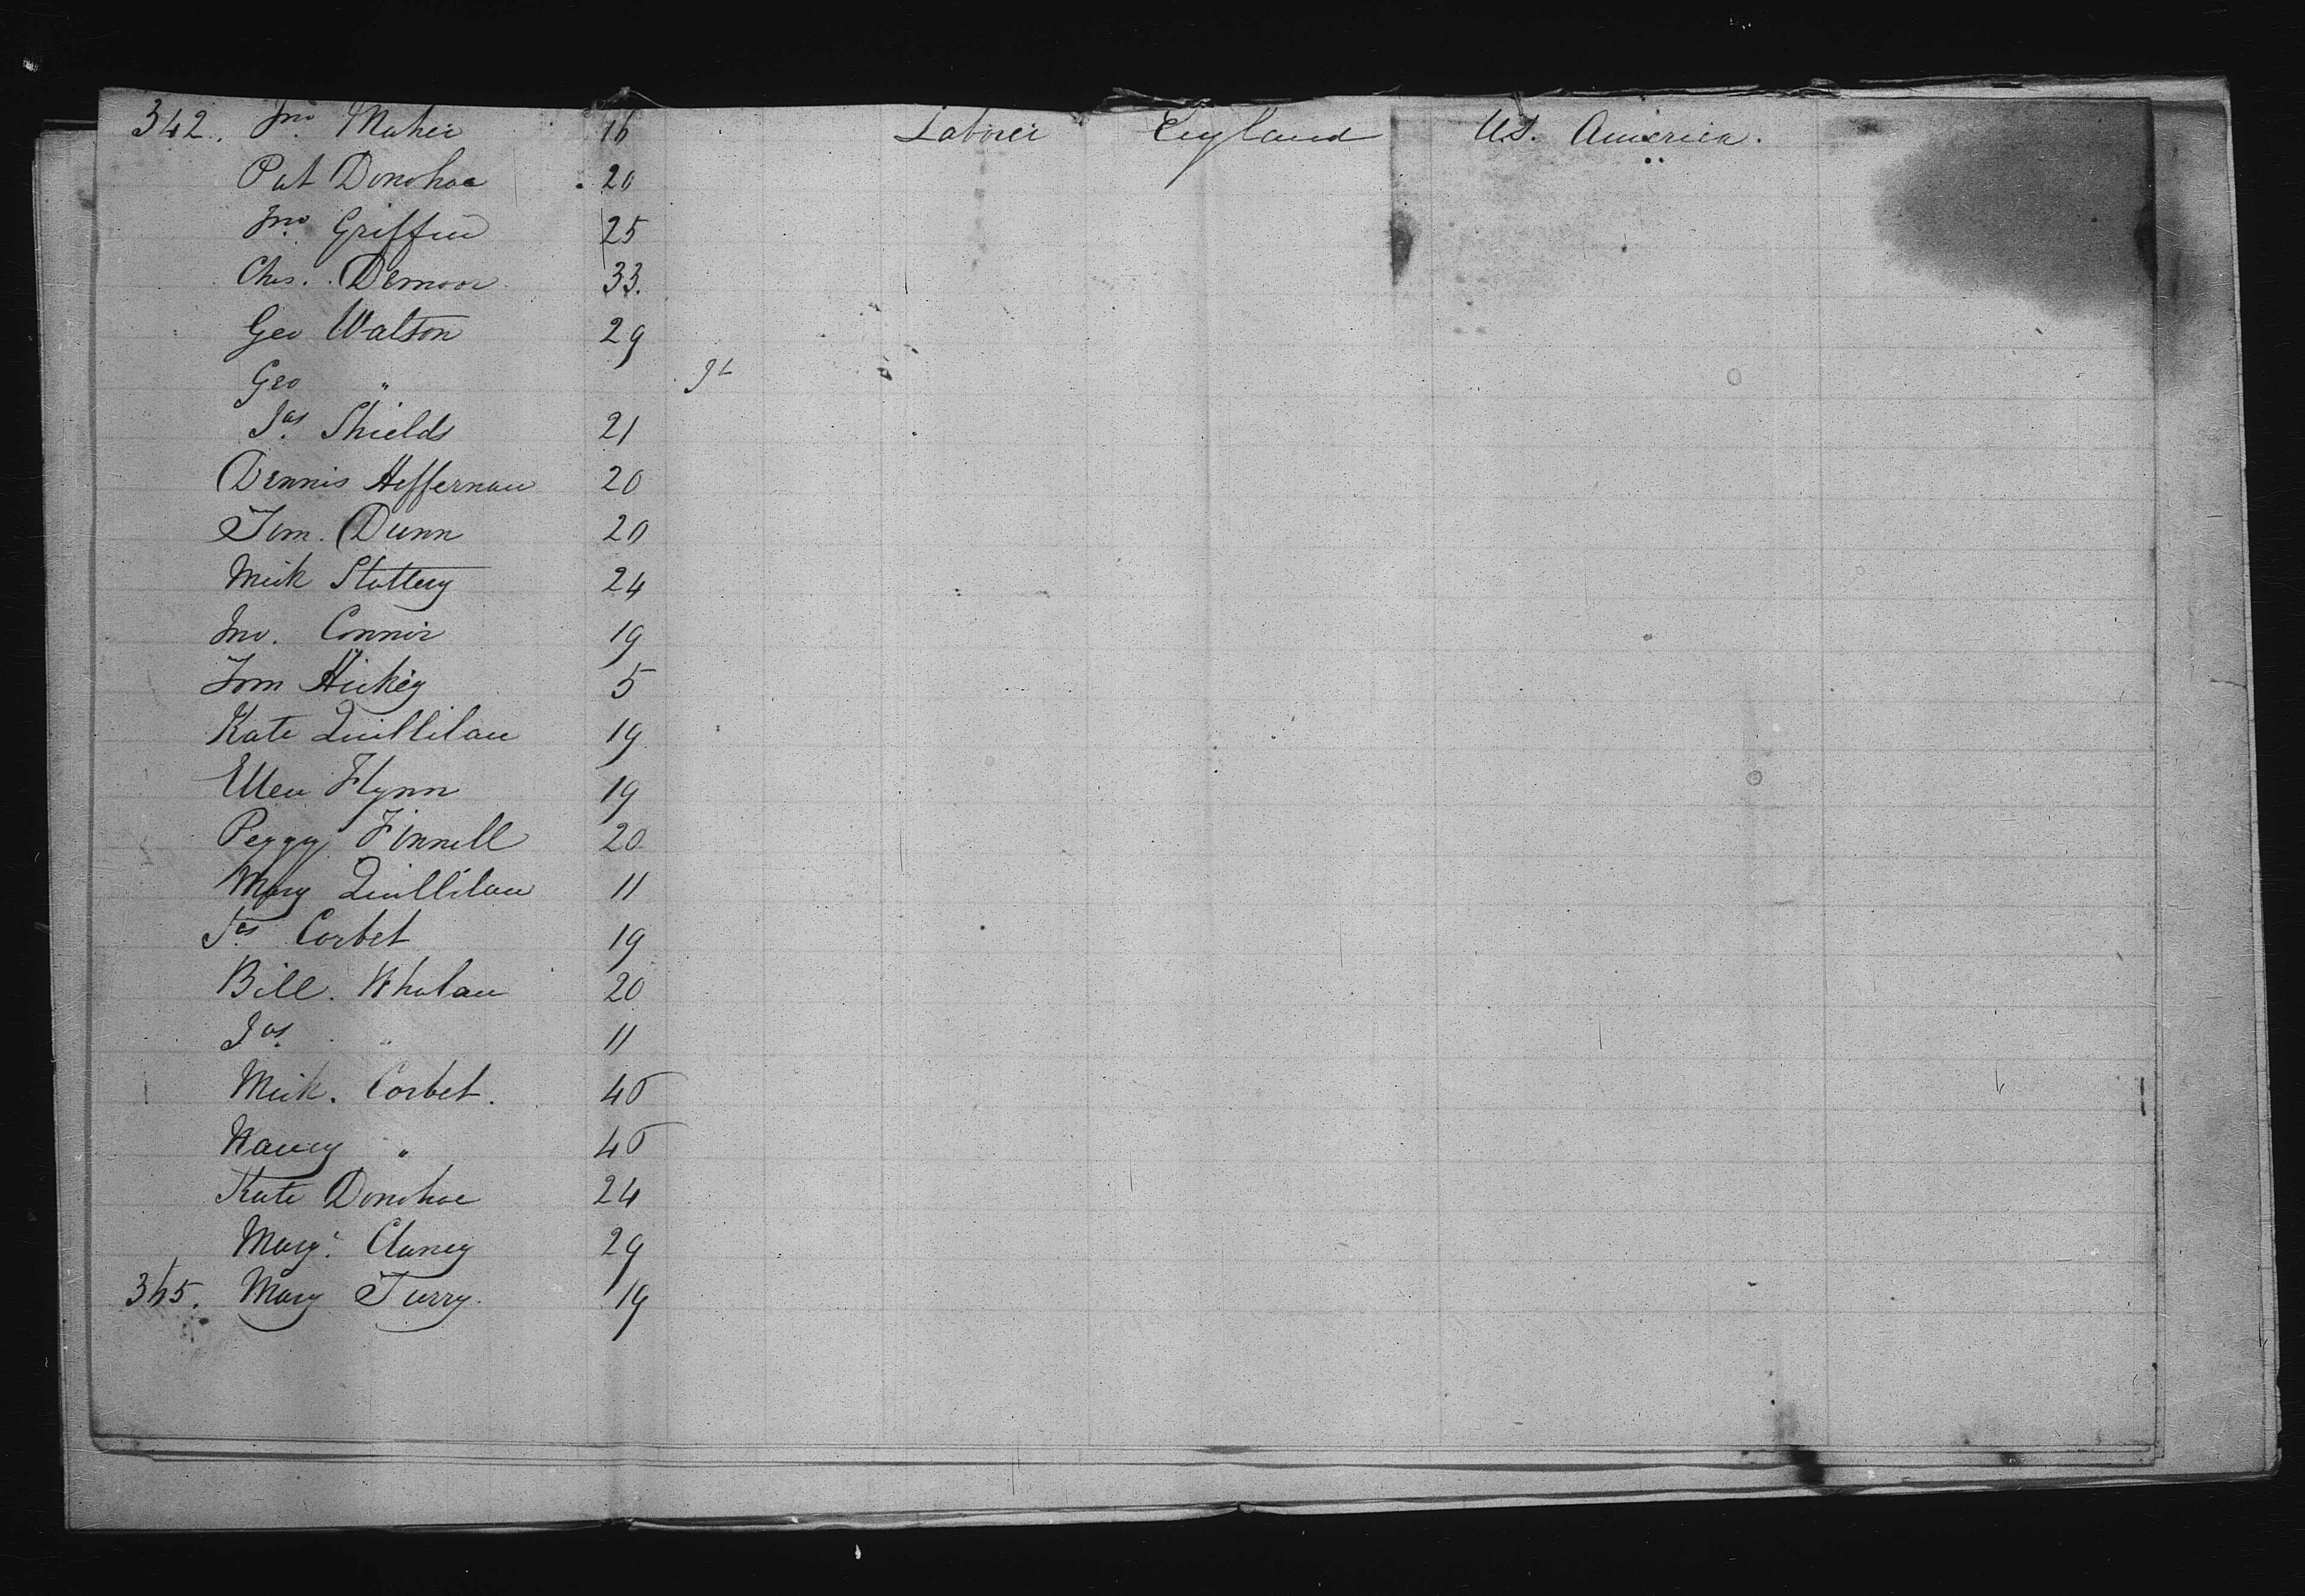 342. Jno. Maher 16 Laborer England U.S. America.
Pat Donohoe 20
Jno. Griffin 25
Chs. Demoor 33.
Geo Walton 29
Geo "
Jas. Shields 21
Dennis Heffernan 20
Tom. Dunn 20
Mick Slattery 24
Jno. Connor 19
Tom Hickey 5
Kate Quillilan 19
Ellen Flynn 19
Peggy Finnell 20
Mary Quillilan 11
Jas. Corbet 19
Bill. Whalan 20
Jas. " 11
Mick. Corbet. 40
Nancy " 40
Kate Donohoe 24
Margt. Clancy 29
365. Mary Turry. 19